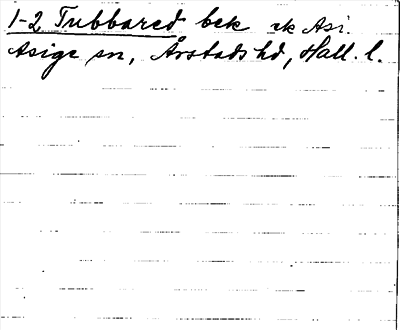 1-2 Tubbared bek ek Asi.
Asige sn, Årstads hd, Hall. l.